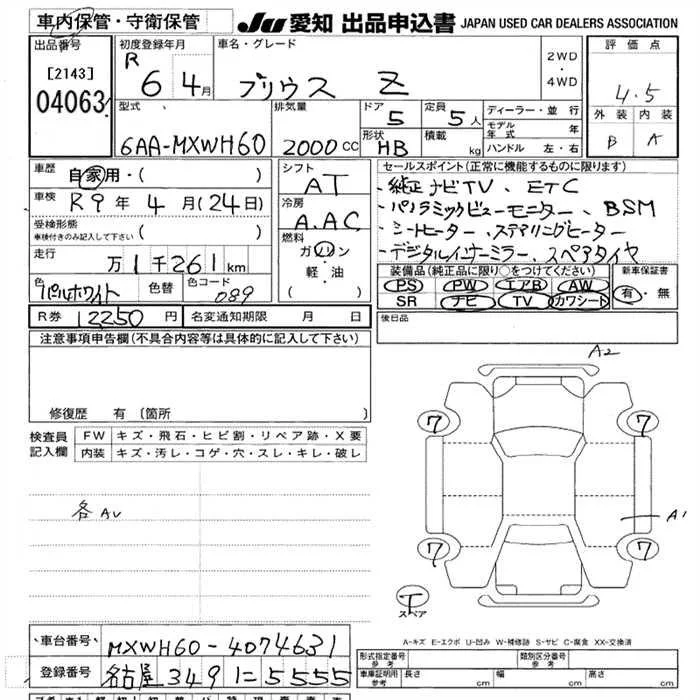 車内保管・守衛保管
JU 愛知 出品申込書 JAPAN USED CAR DEALERS ASSOCIATION
出品番号 [2143] 04063
初度登録年月 R 6 4月
車名・グレード プリウス Z
2WD・4WD
評価点 4.5
外装 内装
B A
型式 6AA-MXWH60
排気量 2000 CC
ドア 5 定員 5人
形状 HB 積載 kg
ディーラー・並行
モデル年式 年
ハンドル 左・右
車歴 自家用・( )
車検 R9年 4月(24日)
受検形態 車検付きのみ記入して下さい ( )
走行 万 1千261 km
色 パールホワイト 色替 色コード 089
シフト AT
冷房 A.AC
燃料 ガソリン
軽・油
( )
セールスポイント(正常に機能するものに限ります)
・純正ナビTV、ETC
・パノラミックビューモニター、BSM
・シートヒーター、ステアリングヒーター
・デジタルインナーミラー、スペアタイヤ
装備品(純正品に限り○をつけてください)
PS PW エアB AW
SR ナビ TV カワシート
新車保証書
有・無
R券 12250 円 名変通知期限 月 日
後日品
注意事項申告欄(不具合内容等は具体的に記入して下さい)
修復歴 有 〔箇所 〕
検査員記入欄
FW キズ・飛石・ヒビ割・リペア跡・X要
内装 キズ・汚レ・コゲ・穴・スレ・キレ・破レ
各AU
A2
7 7
A1
7 7
T
スペア
A-キズ E-エクボ U-凹み W-補修跡 S-サビ C-腐食 XX-交換済
車台番号 MXWH60-4074631
登録番号 名古屋 349 に 5555
形式指定番号 参考
類別区分番号 参考
車庫証明用 参考 長さ cm 幅 cm 高さ cm